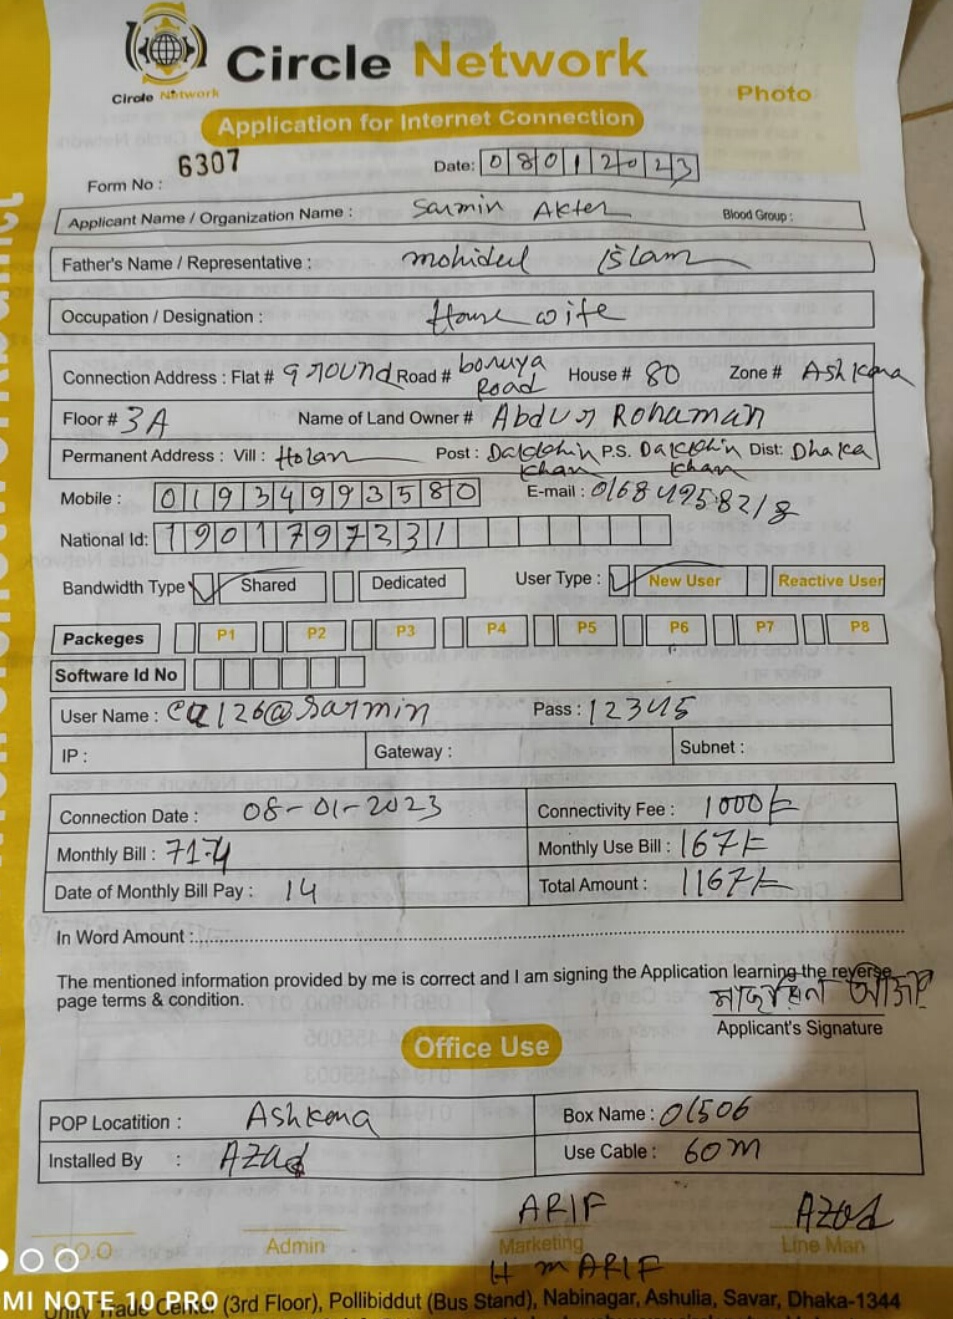 Circle Network
Circle Network
Photo
Application for Internet Connection
Form No : 6307
Date: 08012023
Applicant Name / Organization Name : Sarmin Akter Blood Group :
Father's Name / Representative : mohidul Islam
Occupation / Designation : House wife
Connection Address : Flat # ground Road # boruya Road House # 80 Zone # Ashkona
Floor # 3A Name of Land Owner # Abdur Rohaman
Permanent Address : Vill : Holan Post : Dakkhin khan P.S. Dakkhin khan Dist: Dhaka
Mobile : 01934993580 E-mail : 01684958218
National Id: 1901797331
Bandwidth Type Shared Dedicated User Type : New User Reactive User
Packeges P1 P2 P3 P4 P5 P6 P7 P8
Software Id No
User Name : @sarmin Pass : 12345
IP : Gateway : Subnet :
Connection Date : 08-01-2023 Connectivity Fee : 1000/=
Monthly Bill : Monthly Use Bill : 167/=
Date of Monthly Bill Pay : 14 Total Amount : 1167/=
In Word Amount :
The mentioned information provided by me is correct and I am signing the Application learning the reverse
page terms & condition.
Applicant's Signature
Office Use
POP Locatition : Ashkona Box Name : 01506
Installed By : Azad Use Cable : 60m
ARIF Azad
C.O.O Admin Marketing Line Man
H m ARIF
MI NOTE 10 PRO
Unity Trade Center (3rd Floor), Pollibiddut (Bus Stand), Nabinagar, Ashulia, Savar, Dhaka-1344